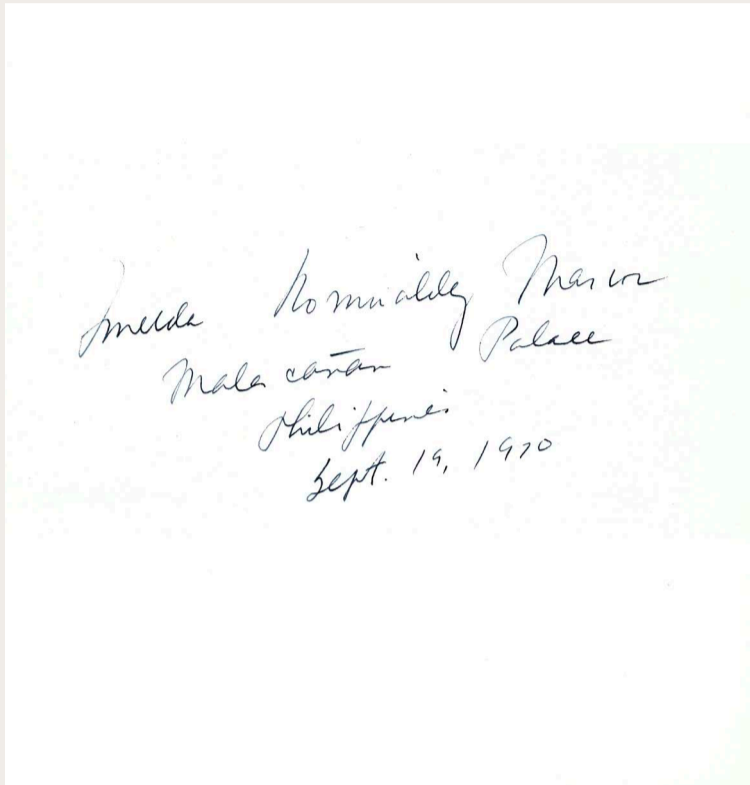 Imelda Romualdez Marcos
Malacañan Palace
Philippines
Sept. 19, 1970